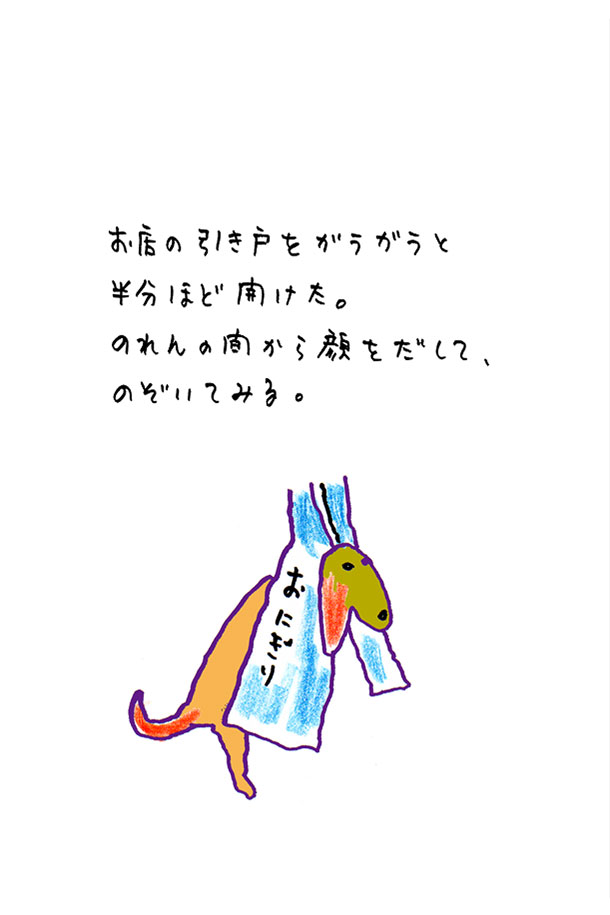 お店の引き戸をがうがうと
半分ほど開けた。
のれんの間から顔をだして、
のぞいてみる。
おにぎり